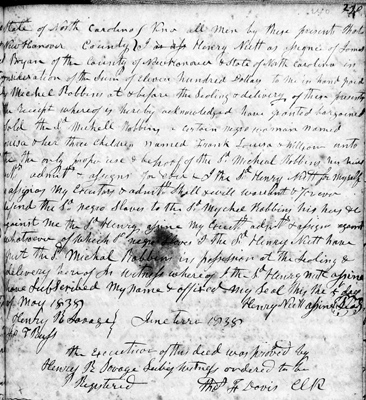 240
State of North Carolina Know all men by these presents that
New Hanover County I Henry Nutt as assignee of
Bryan of the County of New Hanover & State of North Carolina in
consideration of the Sum of Eleven hundred Dollars to me in hand paid
by Michael Robbins at & before the Sealing & delivery of these presents
receipt whereof is hereby acknowledged have granted bargained
sold the Sd. Michael Robbins a certain negro woman named
& her three children named Frank Louisa & Wilson unto
the only proper use & behoof of the Sd. Michael Robbins his heirs
admrs. & assigns for ever & I the Sd. Henry Nutt for myself
assigns my Executors & admrs. Shall & will warrant & forever
defend the Sd. negro Slaves to the Sd. Michael Robbins his heirs &
against me the Sd. Henry, assignee my & assigns against
whatsoever of which Sd. negro Slaves I the Sd. Henry Nutt have
put the Sd. Michael Robbins in possession at the Sealing &
delivery hereof In Witness whereof I the Sd. Henry Nutt assignee
have Subscribed My Name & affixed my Seal this the day
of May 1838 Henry Nutt assignee (Seal)
Henry R Savage } June term 1838
Russ
the execution of this deed was proved by
Henry R Savage Subg Witness ordered to be
Registered Thos. F Davis Clk